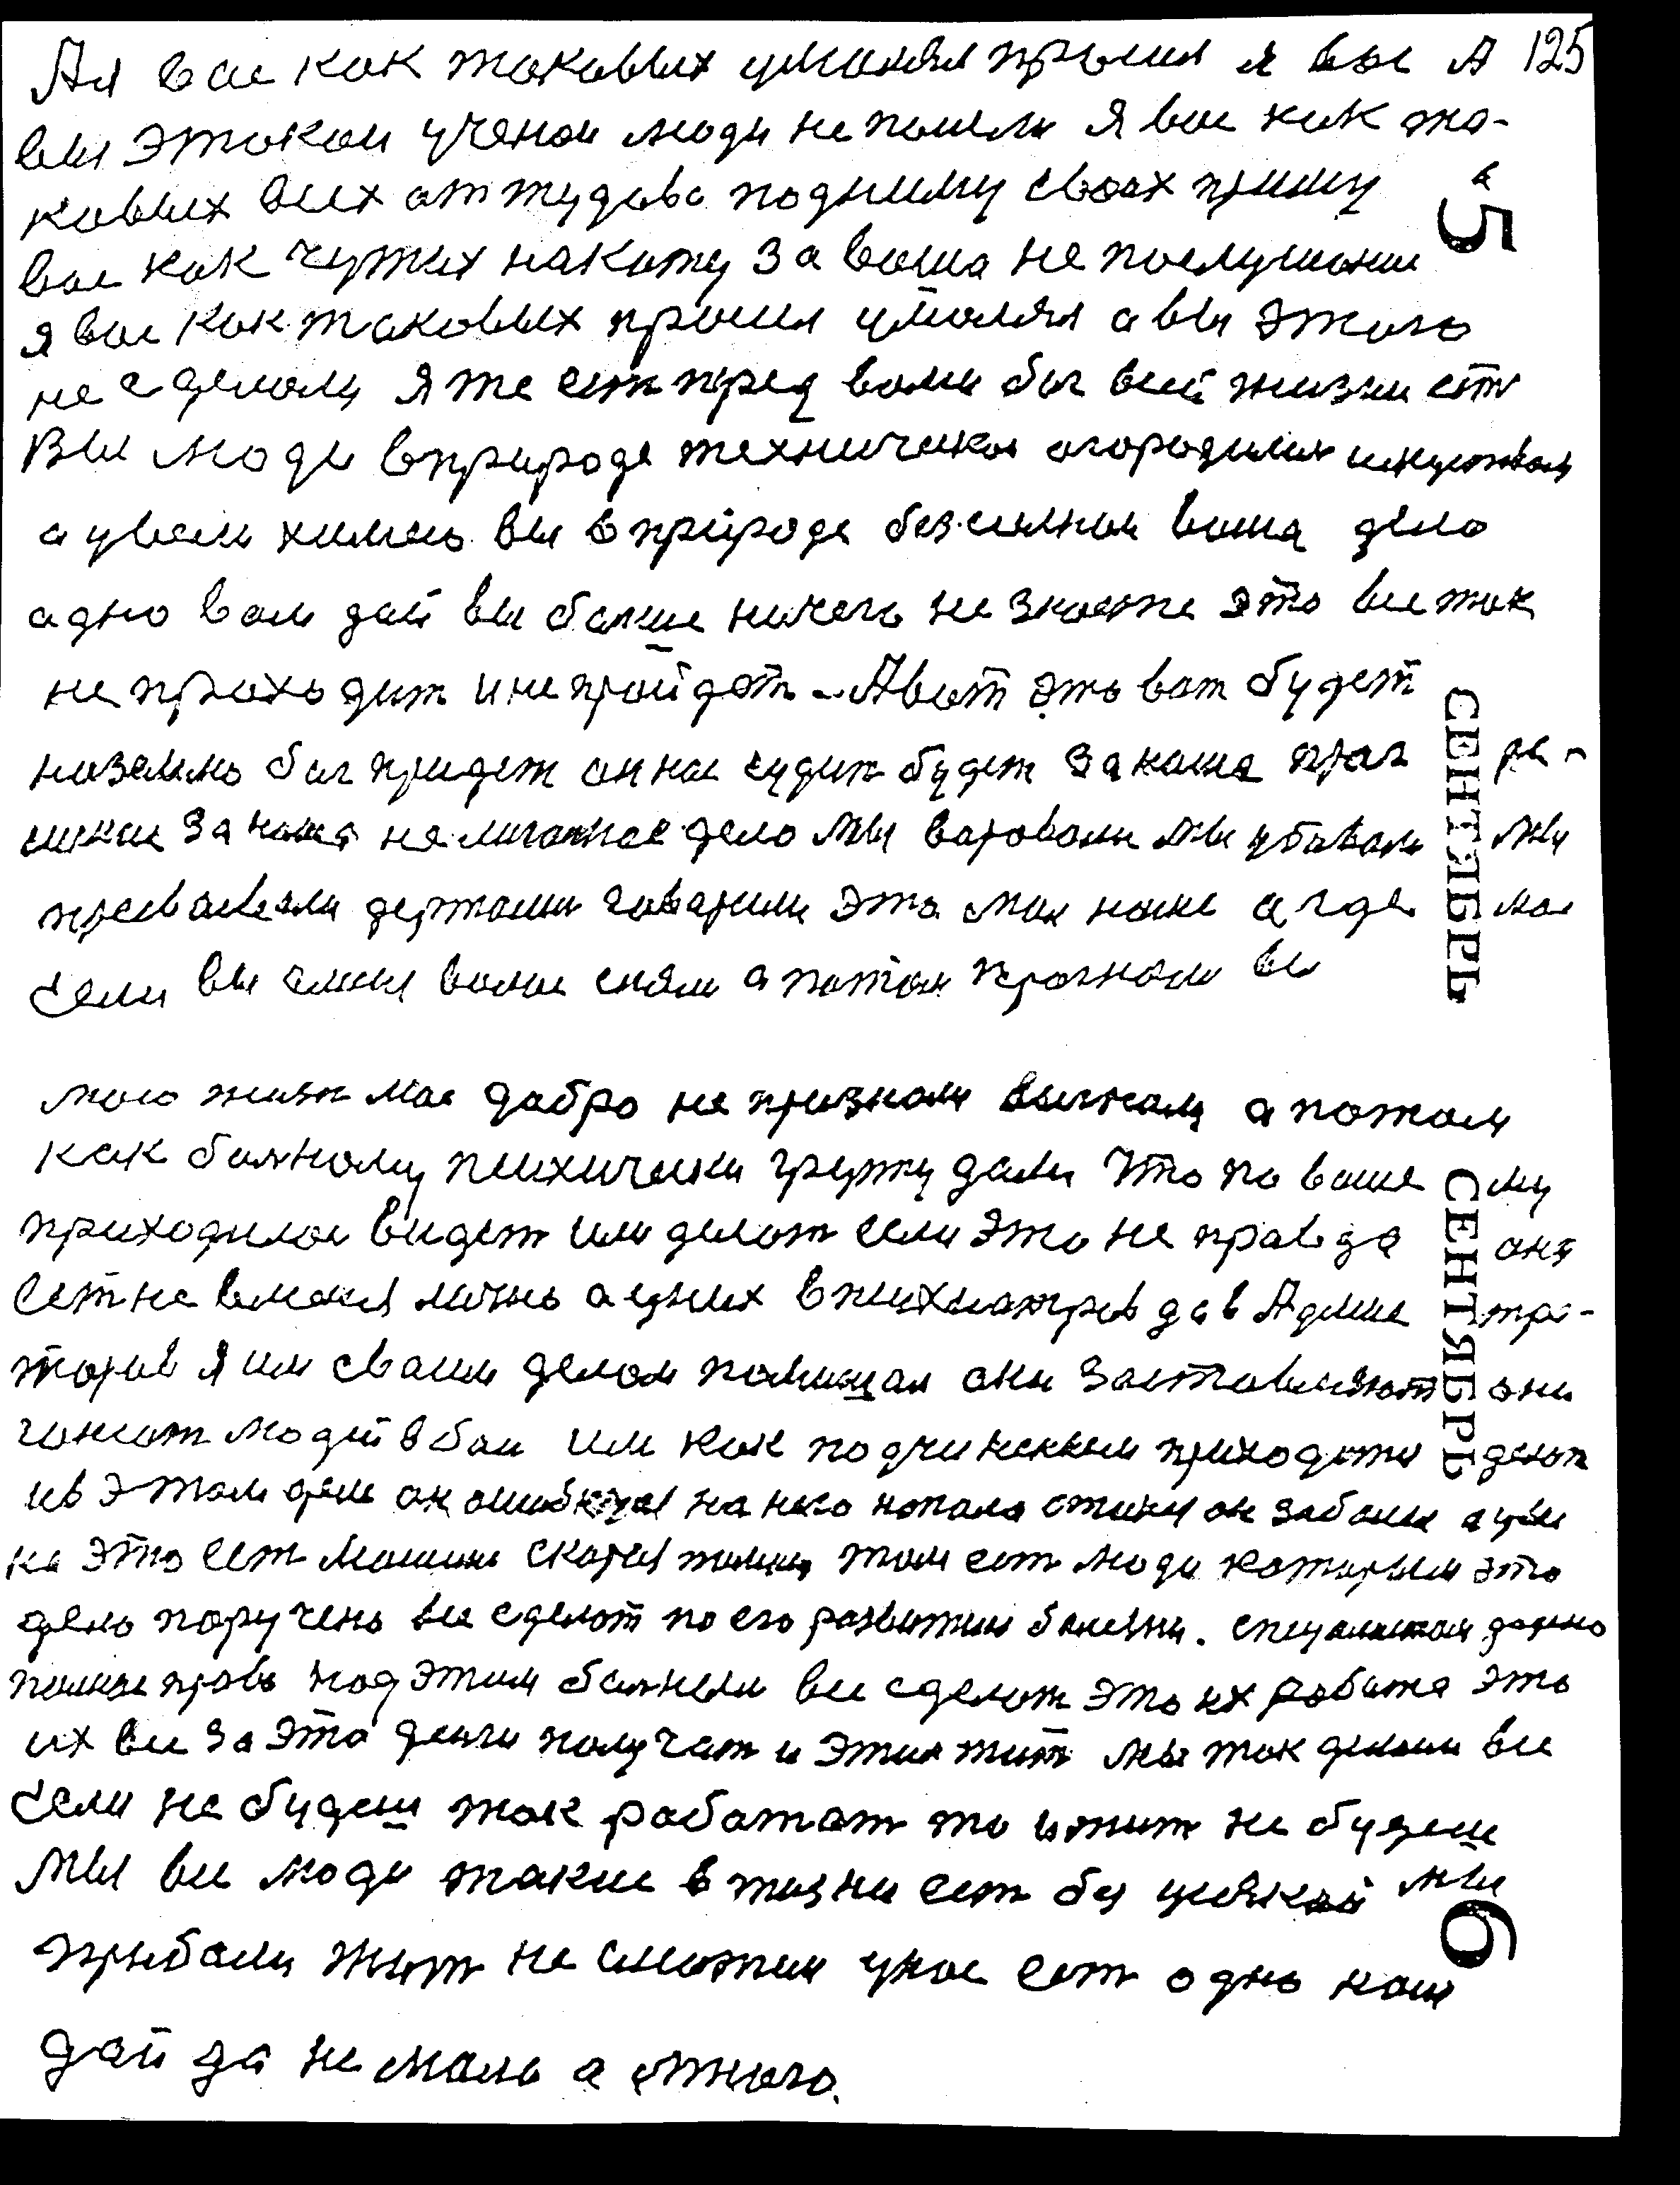 Ая вас как таковых умолял просил я вас А 125
вы этакоиученои люди не пошли Я вас как та-
ковых всех оттудова подниму своих приму
5
вас как чужих накажу за ваша не послушание
я вас как таковых просил умолял а вы этого
не сделали Я же ест пред вами бог всей жизни ест
Вы люди в природе технически огородилис искуством
а у всем химею вы в природе безсилнои ваша дело
адно вам дай вы болше ничего не знаете это все так
не проходит и не пройдет. А вот это вот будет
на землю бог придет он нас судит будет за наша
за наша не легалное дело Мы варовали Мы убивали Мы
присваевали держали гаварили это мая наше а где мое
если вы с меня волос сняли а патом прагнали вы
мою жизн мое дабро не признали выгнали а потом
как болному психически групу дали Что по вашему
приходилос видет или делат если это не правда она
ест не в меня лично а у них в психиатров да в Админстра-
торов я им сваим делом памишал они заставляют они
гонют людей в бои им как подчиненным приходится делат
и в этом деле он ошибился на него напала стихия он заболел а у ве
ка это ест Машина скорая помищ там ест люди каторым это
дело поручено все сделают по его развитию болезни. специалистам дадено
полное право над этим болным все сделат это их работа это
их все за это денги получат и этим жит мы так делаем все
если не будеш так работат то и жит не будеш
Мы все люди такие в жизни ест без усякой мы
прыбали жит не сможим у нас ест одно наше
6
дай да не мало а много.
СЕНТЯБРЬ
СЕНТЯБРЬ